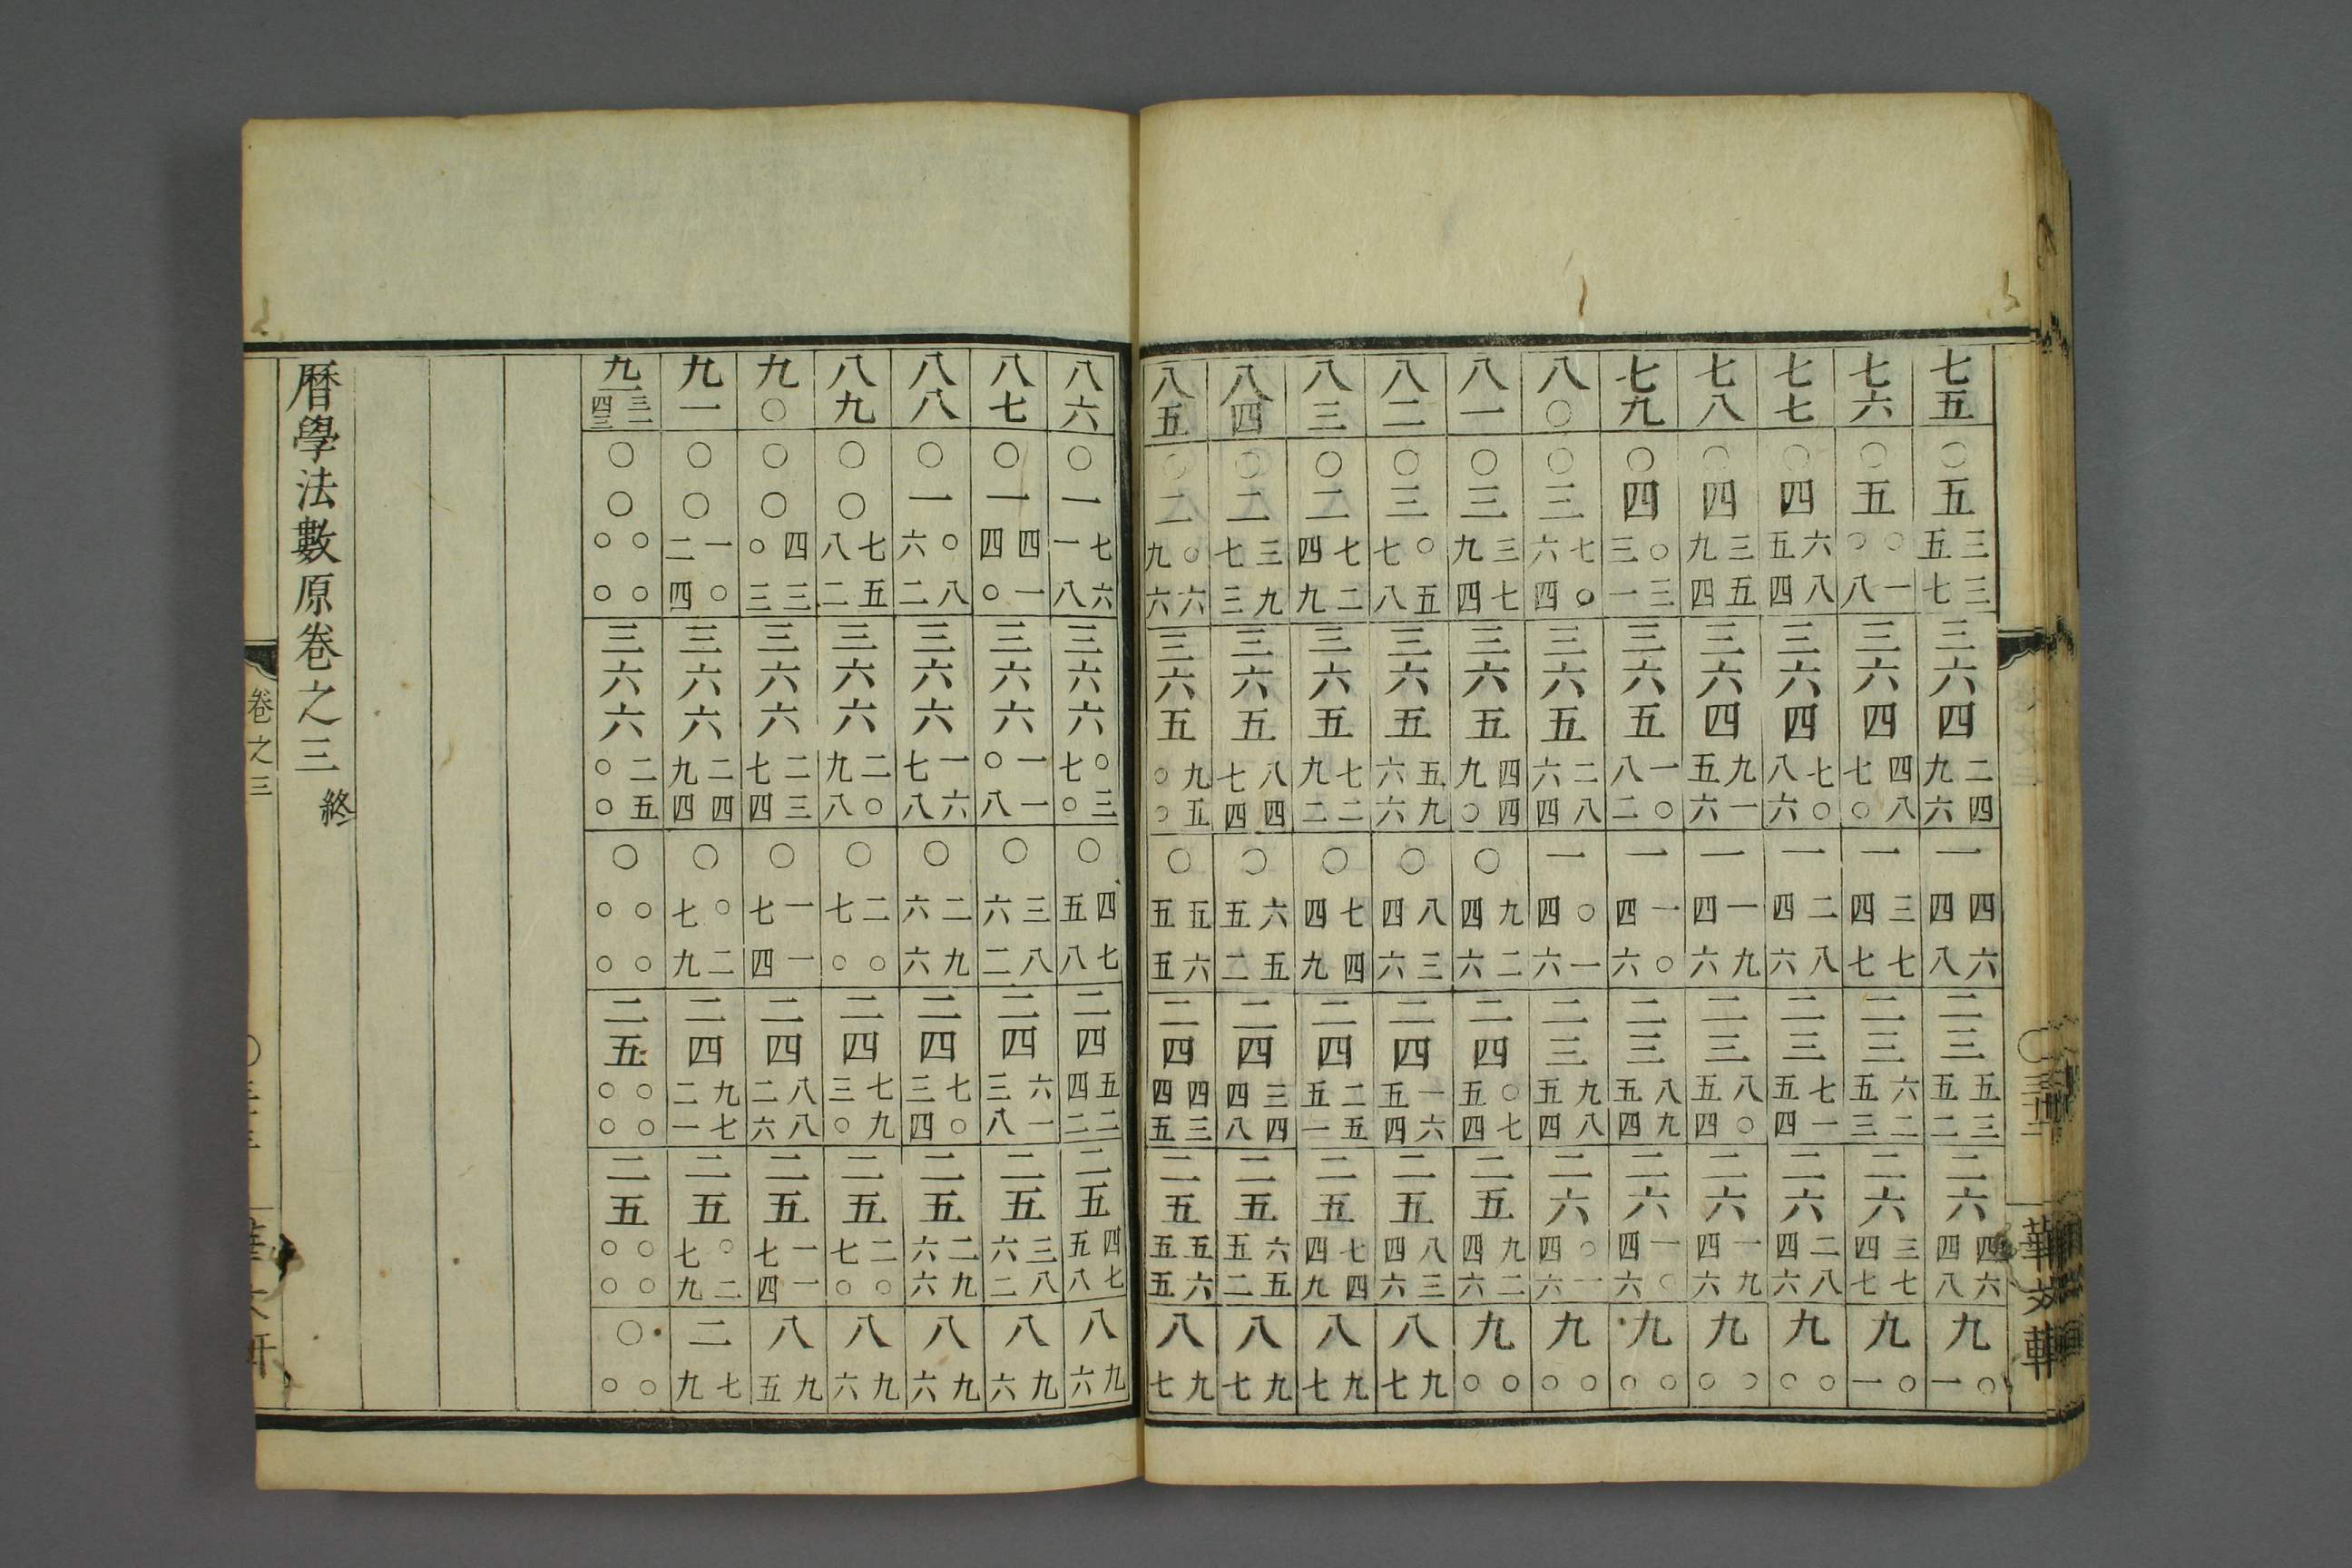 華文軒
七五〇五三三五七三六四二四九六一四六四八二三五三五二二六四六四八九〇一
七六〇五〇一〇八三六四四八七〇一三七四七二三六二五三二六三七四七九〇一
七七〇四六八五四三六四七〇八六一二八四六二三七一五四二六二八四六九〇〇
七八〇四三五九四三六四九一五六一一九四六二三八〇五四二六一九四六九〇〇
七九〇四〇三三一三六五一〇八二一一〇四六二三八九五四二六一〇四六九〇〇
八〇〇三七〇六四三六五二八六四一〇一四六二三九八五四二六〇一四六九〇〇
八一〇三三七九四三六五四四九〇〇九二四六二四〇七五四二五九二四六九〇〇
八二〇三〇五七八三六五五九六六〇八三四六二四一六五四二五八三四六八九七
八三〇二七二四九三六五七二九二〇七四四九二四二五五一二五七四四九八九七
八四〇二三九七三三六五八四七四〇六五五二二四三四四八二五六五五二八九七
八五〇二〇六九六三六五九五〇〇〇五六五五二四四三四五二五五六五五八九七
八六〇一七六一八三六六〇三七〇〇四七五八二四五二四二二五四七五八八九六
八七〇一四一四〇三六六一一〇八〇三八六二二四六一三八二五三八六二八九六
八八〇一〇八六二三六六一六七八〇二九六六二四七〇三四二五二九六六八九六
八九〇〇七五八二三六六二〇九八〇二〇七〇二四七九三〇二五二〇七〇八九六
九〇〇〇四三〇三三六六二三七四〇一一七四二四八八二六二五一一七四八九五
九一〇〇一〇二四三六六二四九四〇〇二七九二四九七二一二五〇二七九二七九
九一三一四三〇〇〇〇〇〇三六六二五〇〇〇〇〇〇〇二五〇〇〇〇二五〇〇〇〇〇〇〇
曆學法數原卷之三終
卷之三